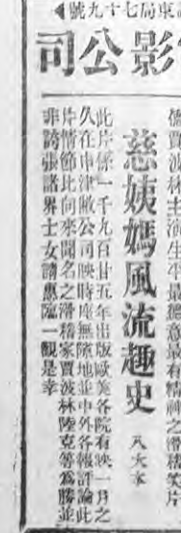 ◀東局七十九號
影公司
德賈波林主演生平最得意最有精神之滑稽笑片
慈姨媽風流趣史 八大本
此片係一千九百廿五年出版歐美各院有映一月之
久在申津敝公司映時座無隙地並中外各報評論此
片情節比向來聞名之滑稽家賈波林陸克等爲勝並
非誇張諸界士女請惠臨一觀是幸